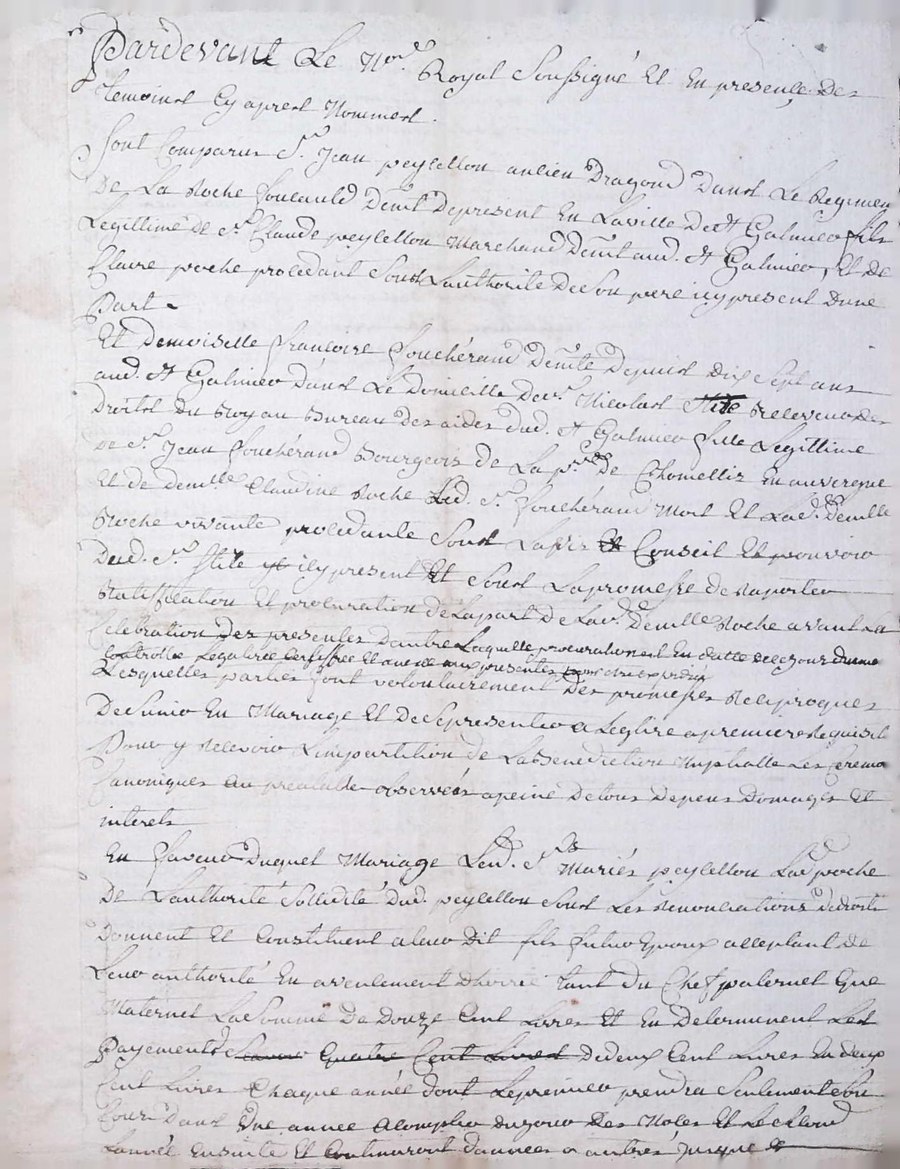 Pardevant Le Nore Royal Soussigné Et En presence des
temoins Cy apres Nommes.
Sont Comparus Sr. Jean peyssellon ancien Dragond Dans Le Regimen
De La Roche foucauld Demt Depresent En Laville De St Galmier fils
Legittime de Sr. Claude peyssellon Marchand Demt aud. St Galmier, Et de
Claire poche procedant Sous L'authorité De Son pere icy present Dune
Part.
Et Demoiselle francoise fouchérand Demte Depuis dix Sept ans
aud. St Galmier Dans Le Domicille de Sr. Nicolas Receveur des
Droits du Royau Bureau Des aides dud. St Galmier fille Legittime
de Sr. Jean fouchérand Bourgeois de La psse de En auvergne
Et de demlle Claudine Roche Led. Sr. fouchérand Mort Et Lade. Demlle
Roche vivante procedante Sous Lavis Et Conseil Et pouvoir
Dud. Sr. icy present Et Sous La promesse de Raporter
Ratiffication Et procuration de La part De Lade. Demlle Roche avant La
Celebration Des presentes Laquelle procuration En datte de ce jour
Controllé Legalisée aux presentes
Lesquelles parties font volontairement Des promesses Reciproques
De Sunir En Mariage Et De Se presenter a Leglise a premiere Requisit
Pour y Recevoir Limpartition de La Benediction Nuptialle Les Cerema
Canoniques au prealable observées a peine De tous Depens Domages Et
interets
En faveur Duquel Mariage Led. Srs Mariés peyssellon Lade poche
De L'authorité Sollidité Dud. peyssellon Sous Les Renonciations de droits
Donnent Et Constituent a Leur Dit fils futur Epoux acceptant de
Leur authorité En avencement D'hoirie tant du Chef paternel Que
Maternel La Somme De Douze Cent Livres Et En Determinent Les
Payements Quatre Cent Livres De deux Cent Livres En deux
Cent Livres Chaque année dont Le premier prendra Seulement
Cour Dans Une année a Compter du jour Des Noces Et Le Second
Lannée Ensuite Et Continuront Dannées a autres Jusque